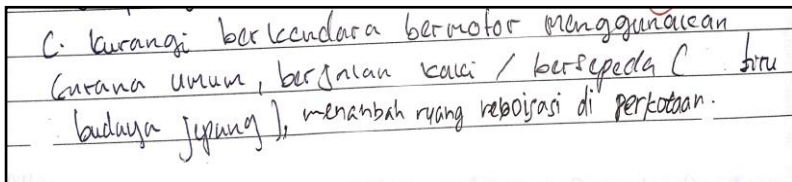 C. kurangi berkendara bermotor menggunakan
sarana umum, berjalan kaki / bersepeda ( tiru
budaya jepang ), menambah ruang reboisasi di perkotaan.